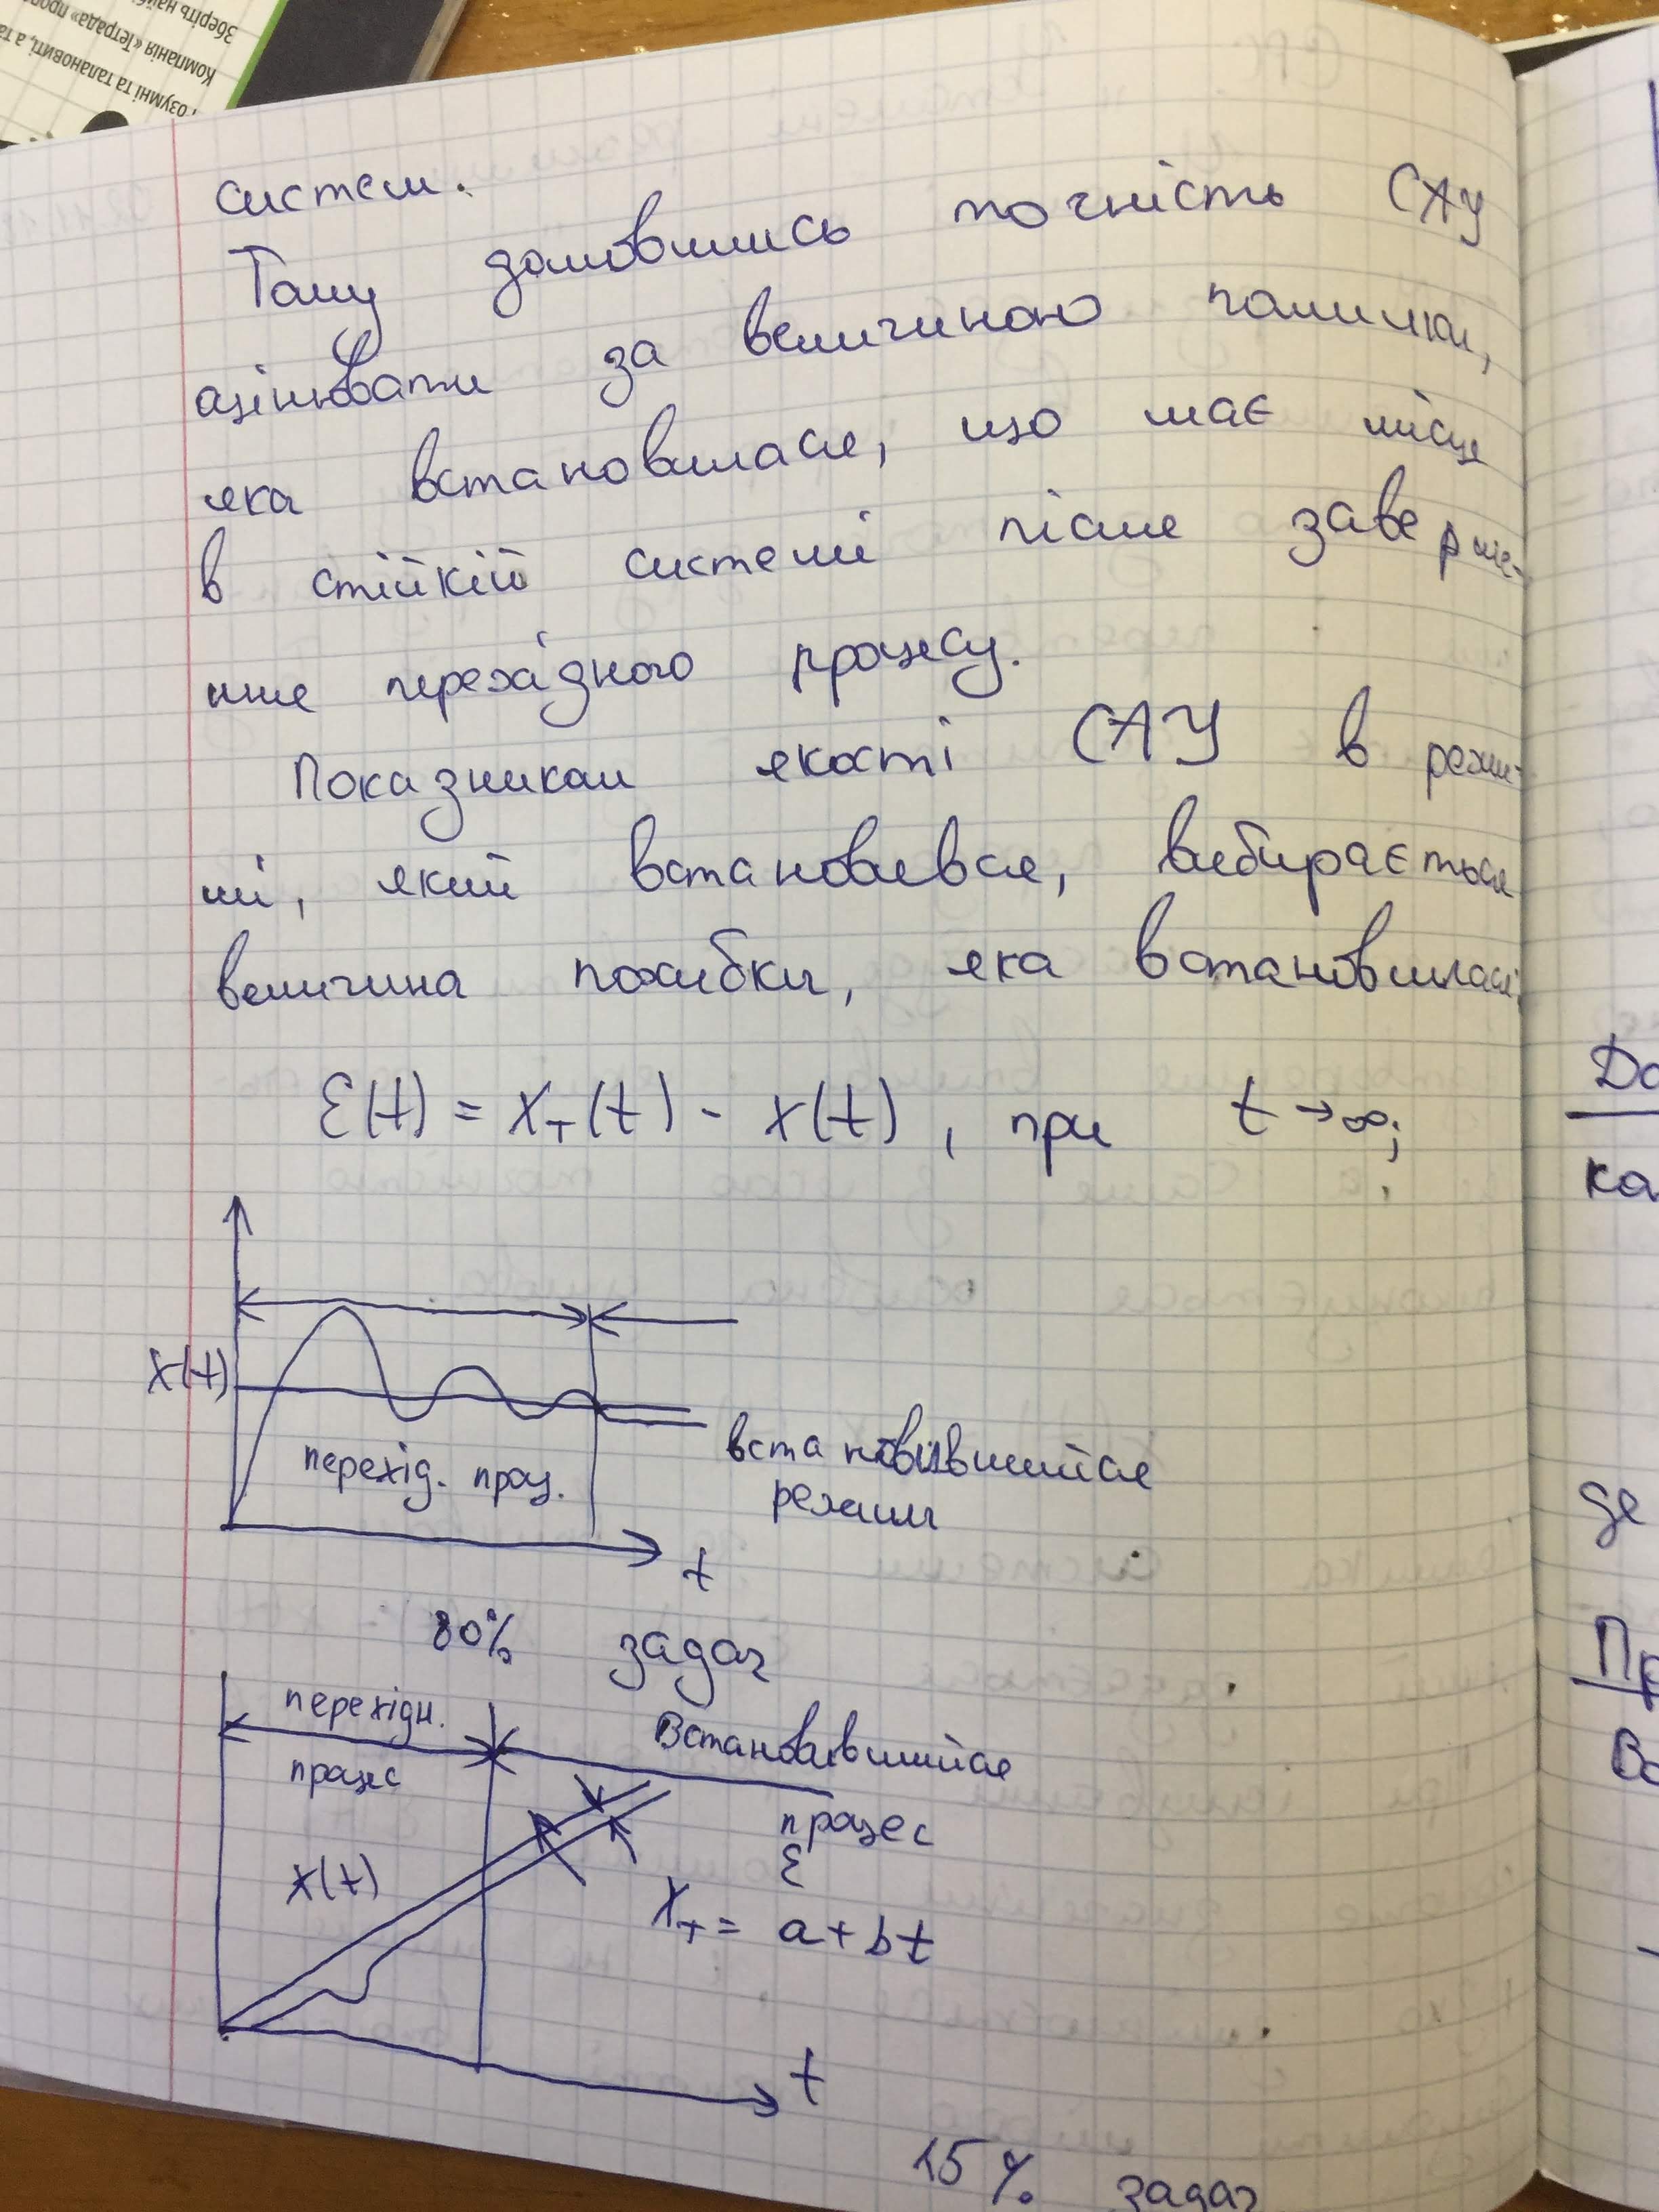 озумні та талановиті, а та
Компанія «Тетрада» проп
Зберіть най
систем.
Тому домовились точність САУ
оцінювати за величиною помилки,
яка встановилася, що має місце
в стійкій системі після заверше-
ння перехідного процесу.
Показником якості САУ в режи-
мі, який встановився, вибирається
величина похибки, яка встановилася;
Ɛ(t) = Xт(t) - x(t), при t→∞;
X(t)
перехід. проц.
встановившийся
режим
t
80% задач
перехідн.
процес
Встановившийся
процес
Ɛ
x(t)
Xт = a+bt
t
15% задач
До
ка
де
Пр